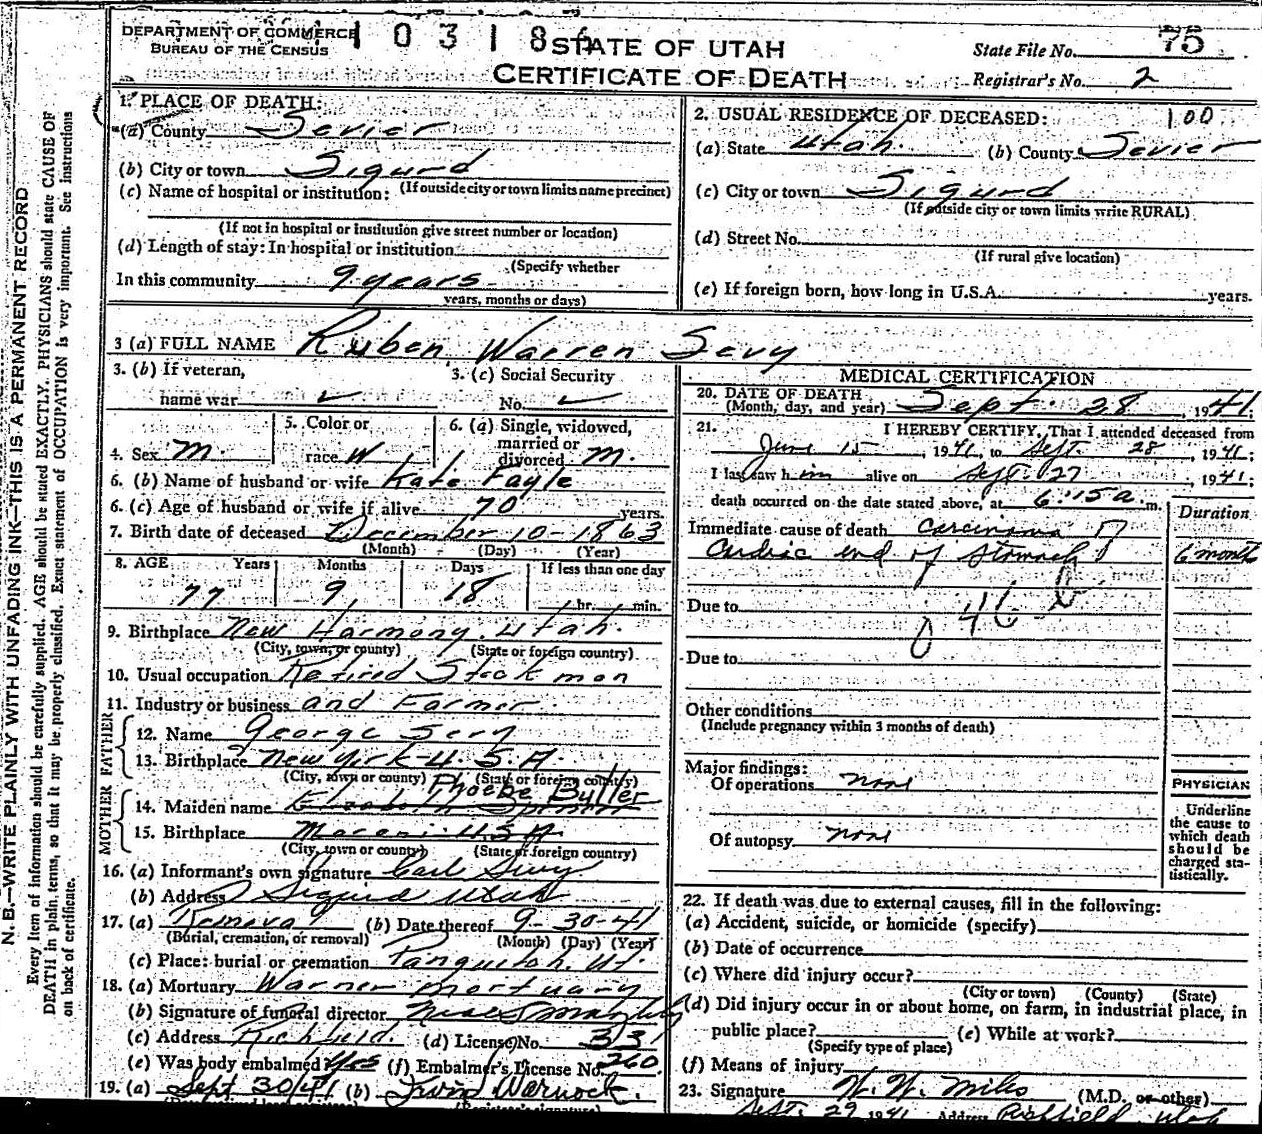 DEPARTMENT OF COMMERCE
BUREAU OF THE CENSUS
1 0 3 1 8
STATE OF UTAH
CERTIFICATE OF DEATH
State File No. 75
Registrar's No. 2
1. PLACE OF DEATH:
(a) County Sevier
(b) City or town Sigurd
(c) Name of hospital or institution: (If outside city or town limits name precinct)
(If not in hospital or institution give street number or location)
(d) Length of stay: In hospital or institution
(Specify whether
In this community 9 years
years, months or days)
2. USUAL RESIDENCE OF DECEASED: 100
(a) State Utah. (b) County Sevier
(c) City or town Sigurd
(If outside city or town limits write RURAL)
(d) Street No.
(If rural give location)
(e) If foreign born, how long in U.S.A. years.
3 (a) FULL NAME Ruben Warren Sevy
3. (b) If veteran, 3. (c) Social Security
name war No.
4. Sex M. 5. Color or race W 6. (a) Single, widowed, married or divorced M.
6. (b) Name of husband or wife Kate Fayle
6. (c) Age of husband or wife if alive 70 years.
7. Birth date of deceased December 10-1863
(Month) (Day) (Year)
8. AGE Years Months Days If less than one day
77 9 18 hr. min.
9. Birthplace New Harmony. Utah.
(City, town, or county) (State or foreign country)
10. Usual occupation Retired Stockman
11. Industry or business and Farmer
FATHER
12. Name George Sevy
13. Birthplace New York U.S.A.
(City, town or county) (State or foreign country)
MOTHER
Phoebe Butler
14. Maiden name Elizabeth
15. Birthplace U.S.A.
(City, town or county) (State or foreign country)
16. (a) Informant's own signature Carl Sevy
(b) Address Sigurd Utah
17. (a) Removal (b) Date thereof 9-30-41
(Burial, cremation, or removal) (Month) (Day) (Year)
(c) Place: burial or cremation Panguitch. Ut.
18. (a) Mortuary Warner Mortuary
(b) Signature of funeral director
(c) Address Richfield. (d) License No. 331
(e) Was body embalmed Yes (f) Embalmer's License No. 260
19. (a) Sept 30/41 (b) Irvin Warnock.
MEDICAL CERTIFICATION
20. DATE OF DEATH
(Month, day, and year) Sept. 28, 1941;
21. I HEREBY CERTIFY, That I attended deceased from
June 15, 1941, to Sept. 28, 1941;
I last saw him alive on Sept. 27, 1941;
death occurred on the date stated above, at 6:15 a. m.
Duration
Immediate cause of death Carcinoma of
Cardiac end of stomach 6 months
Due to 46 b
Due to
Other conditions
(Include pregnancy within 3 months of death)
Major findings:
Of operations none
Of autopsy none
PHYSICIAN
Underline
the cause to
which death
should be
charged sta-
tistically.
22. If death was due to external causes, fill in the following:
(a) Accident, suicide, or homicide (specify)
(b) Date of occurrence
(c) Where did injury occur?
(City or town) (County) (State)
(d) Did injury occur in or about home, on farm, in industrial place, in
public place? (e) While at work?
(Specify type of place)
(f) Means of injury
23. Signature (M.D. or other)
Sept. 29 1941 Address Richfield, Utah
N. B.—WRITE PLAINLY WITH UNFADING INK—THIS IS A PERMANENT RECORD
Every item of information should be carefully supplied. AGE should be stated EXACTLY. PHYSICIANS should state CAUSE OF
DEATH in plain, terms, so that it may be properly classified. Exact statement of OCCUPATION is very important. See instructions
on back of certificate.